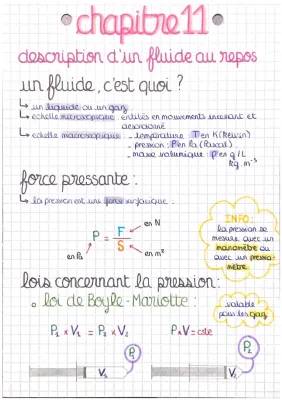 chapitre 11
description d'un fluide au repos
un fluide, c'est quoi ?
↳ un liquide ou un gaz
↳ échelle microscopique : entités en mouvements incessant et
désordonné
↳ échelle macroscopique : - température T en K (Kelvin)
- pression : P en Pa (Pascal)
- masse volumique : ρ en g/L
kg.m⁻³
force pressante :
↳ la pression est une force surfacique :
P = F/S
en N
en Pa
en m²
INFO :
la pression se
mesure avec un
manomètre ou
avec un pressio-
mètre.
lois concernant la pression :
loi de Boyle-Mariotte :
valable
pour les gaz
P₁ x V₁ = P₂ x V₂
P x V = cste
P₁
V₁
P₂
V₂